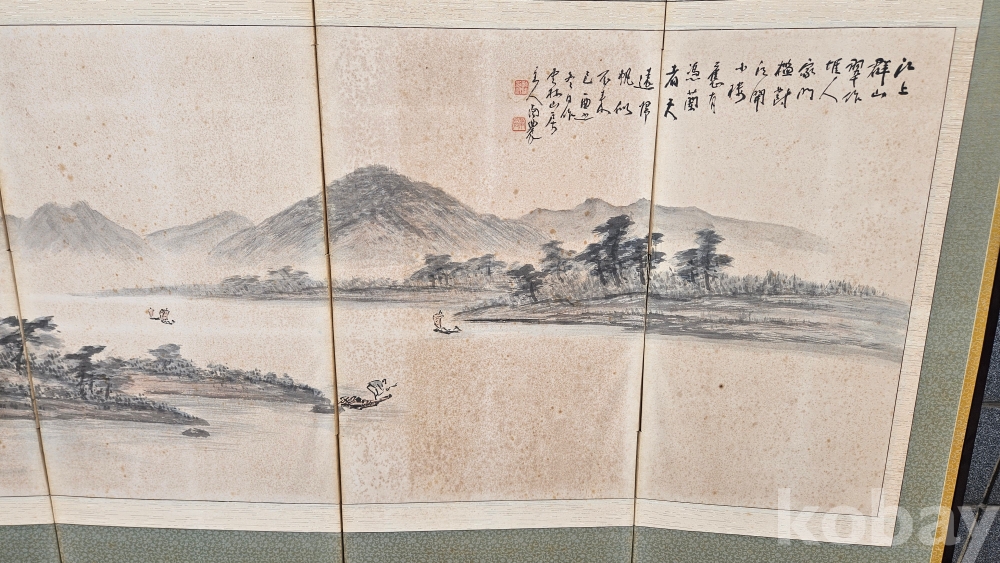 江上
群山
翠作
堆人
家門
檻對
江開
小樓
應有
憑蘭
者天
遠歸
帆似
不來
己酉
冬日作
雲林山居
主人南農
kobay